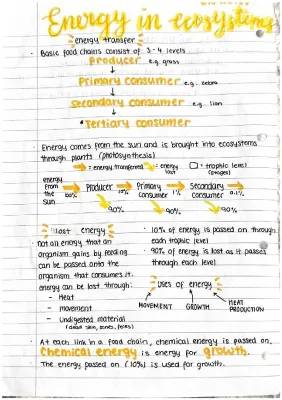 Energy in ecosystems
energy transfer
· Basic food chains consist of 3-4 levels
Producer e.g. grass
↓
Primary consumer e.g. zebra
↓
Secondary consumer e.g. lion
↓
*Tertiary consumer
· Energy comes from the sun and is brought into ecosystems
through plants (photosynthesis)
→ = energy transferred → = energy lost □ = trophic level (stages)
energy from the sun → 100% Producer → 10% Primary consumer → 1% Secondary consumer → 0.1%
90% 90% 90%
lost energy
· not all energy that an
organism gains by feeding
can be passed onto the
organism that consumes it.
energy can be lost through:
- Heat
- movement
- undigested material
(dead skin, bones, feces)
· 10% of energy is passed on through
each trophic level
· 90% of energy is lost as it passes
through each level
uses of energy
MOVEMENT GROWTH HEAT PRODUCTION
· At each link in a food chain, chemical energy is passed on.
Chemical energy is energy for growth.
The energy passed on (10%) is used for growth.